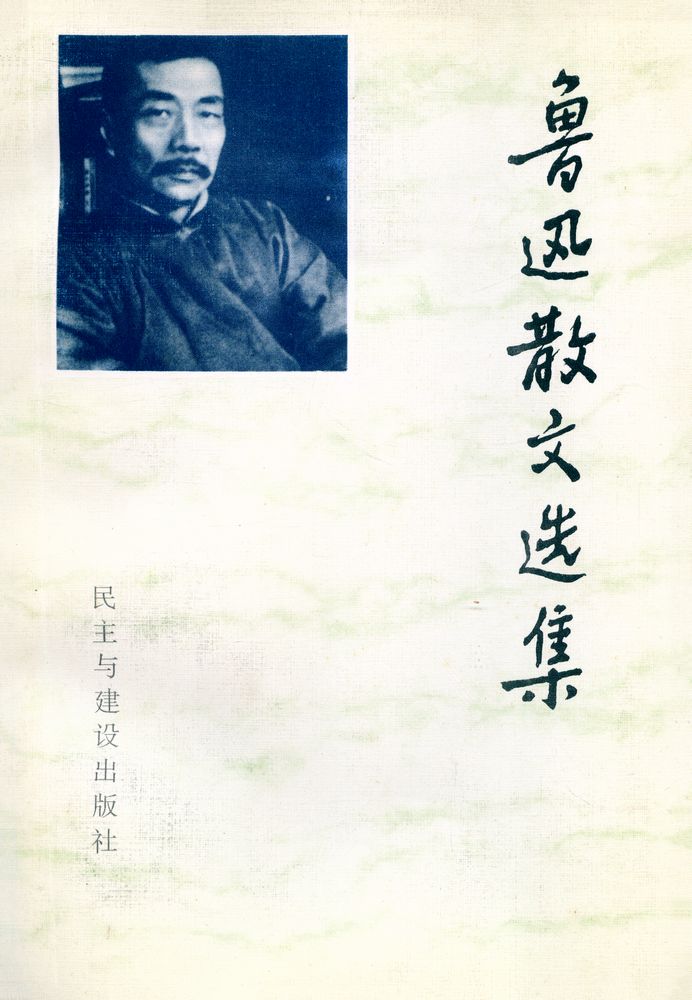 鲁迅散文选集
民主与建设出版社